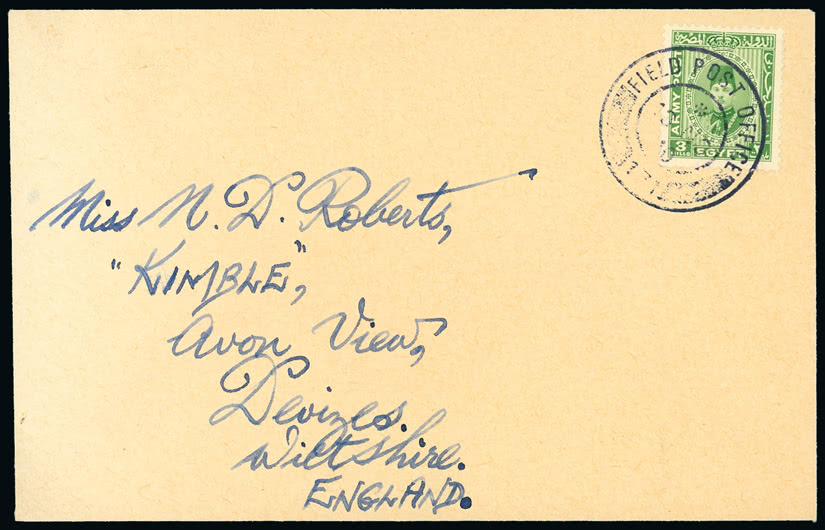 FIELD POST OFFICE
ARMY POST
3
MILLS
EGYPT
Miss N. D. Roberts,
"KIMBLE",
Avon View,
Devizes.
Wiltshire.
ENGLAND.